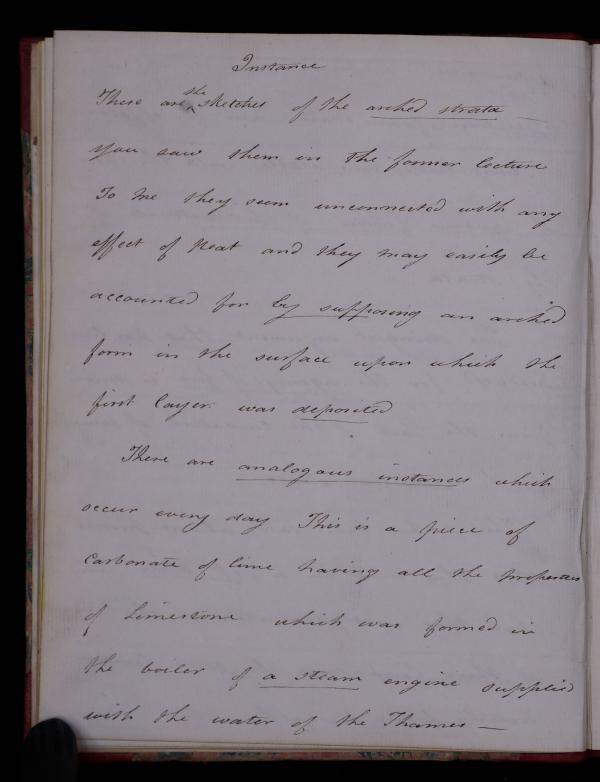 Instance
These are the sketches of the arched strata —
you saw them in the former lecture
To me they seem unconnected with any
effect of Heat and they may easily be
accounted for by supposing an arched
form in the surface upon which the
first layer was deposited
There are analogous instances which
occur every day This is a piece of
Carbonate of lime having all the properties
of Limestone which was formed in
the boiler of a steam engine supplied
with the water of the Thames —